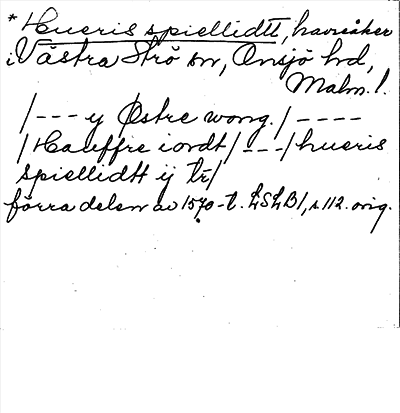 * Hueris spiellidtt, havreåker
i Västra Strö sn, Onsjö hrd,
Malm. l.
/--- y Østre wong. / ----
/ Hauffre iordt / --- / hueris
spiellidtt ij tr/
förra delen av 1570-t. LSLB1, s. 112. orig.